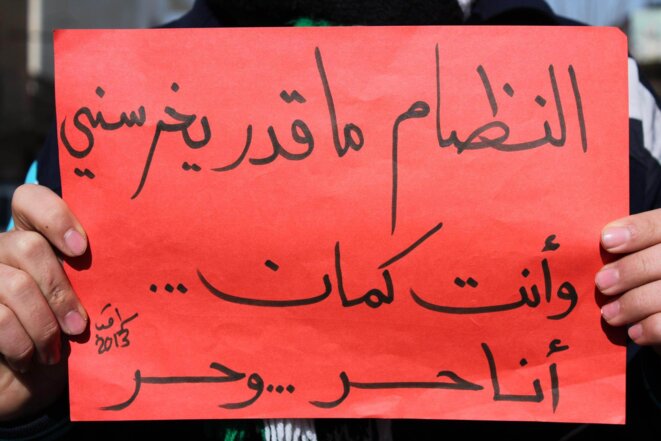 النظام ما قدر يخرسني
وأنت كمان...
2013
أنا حر ...وحر